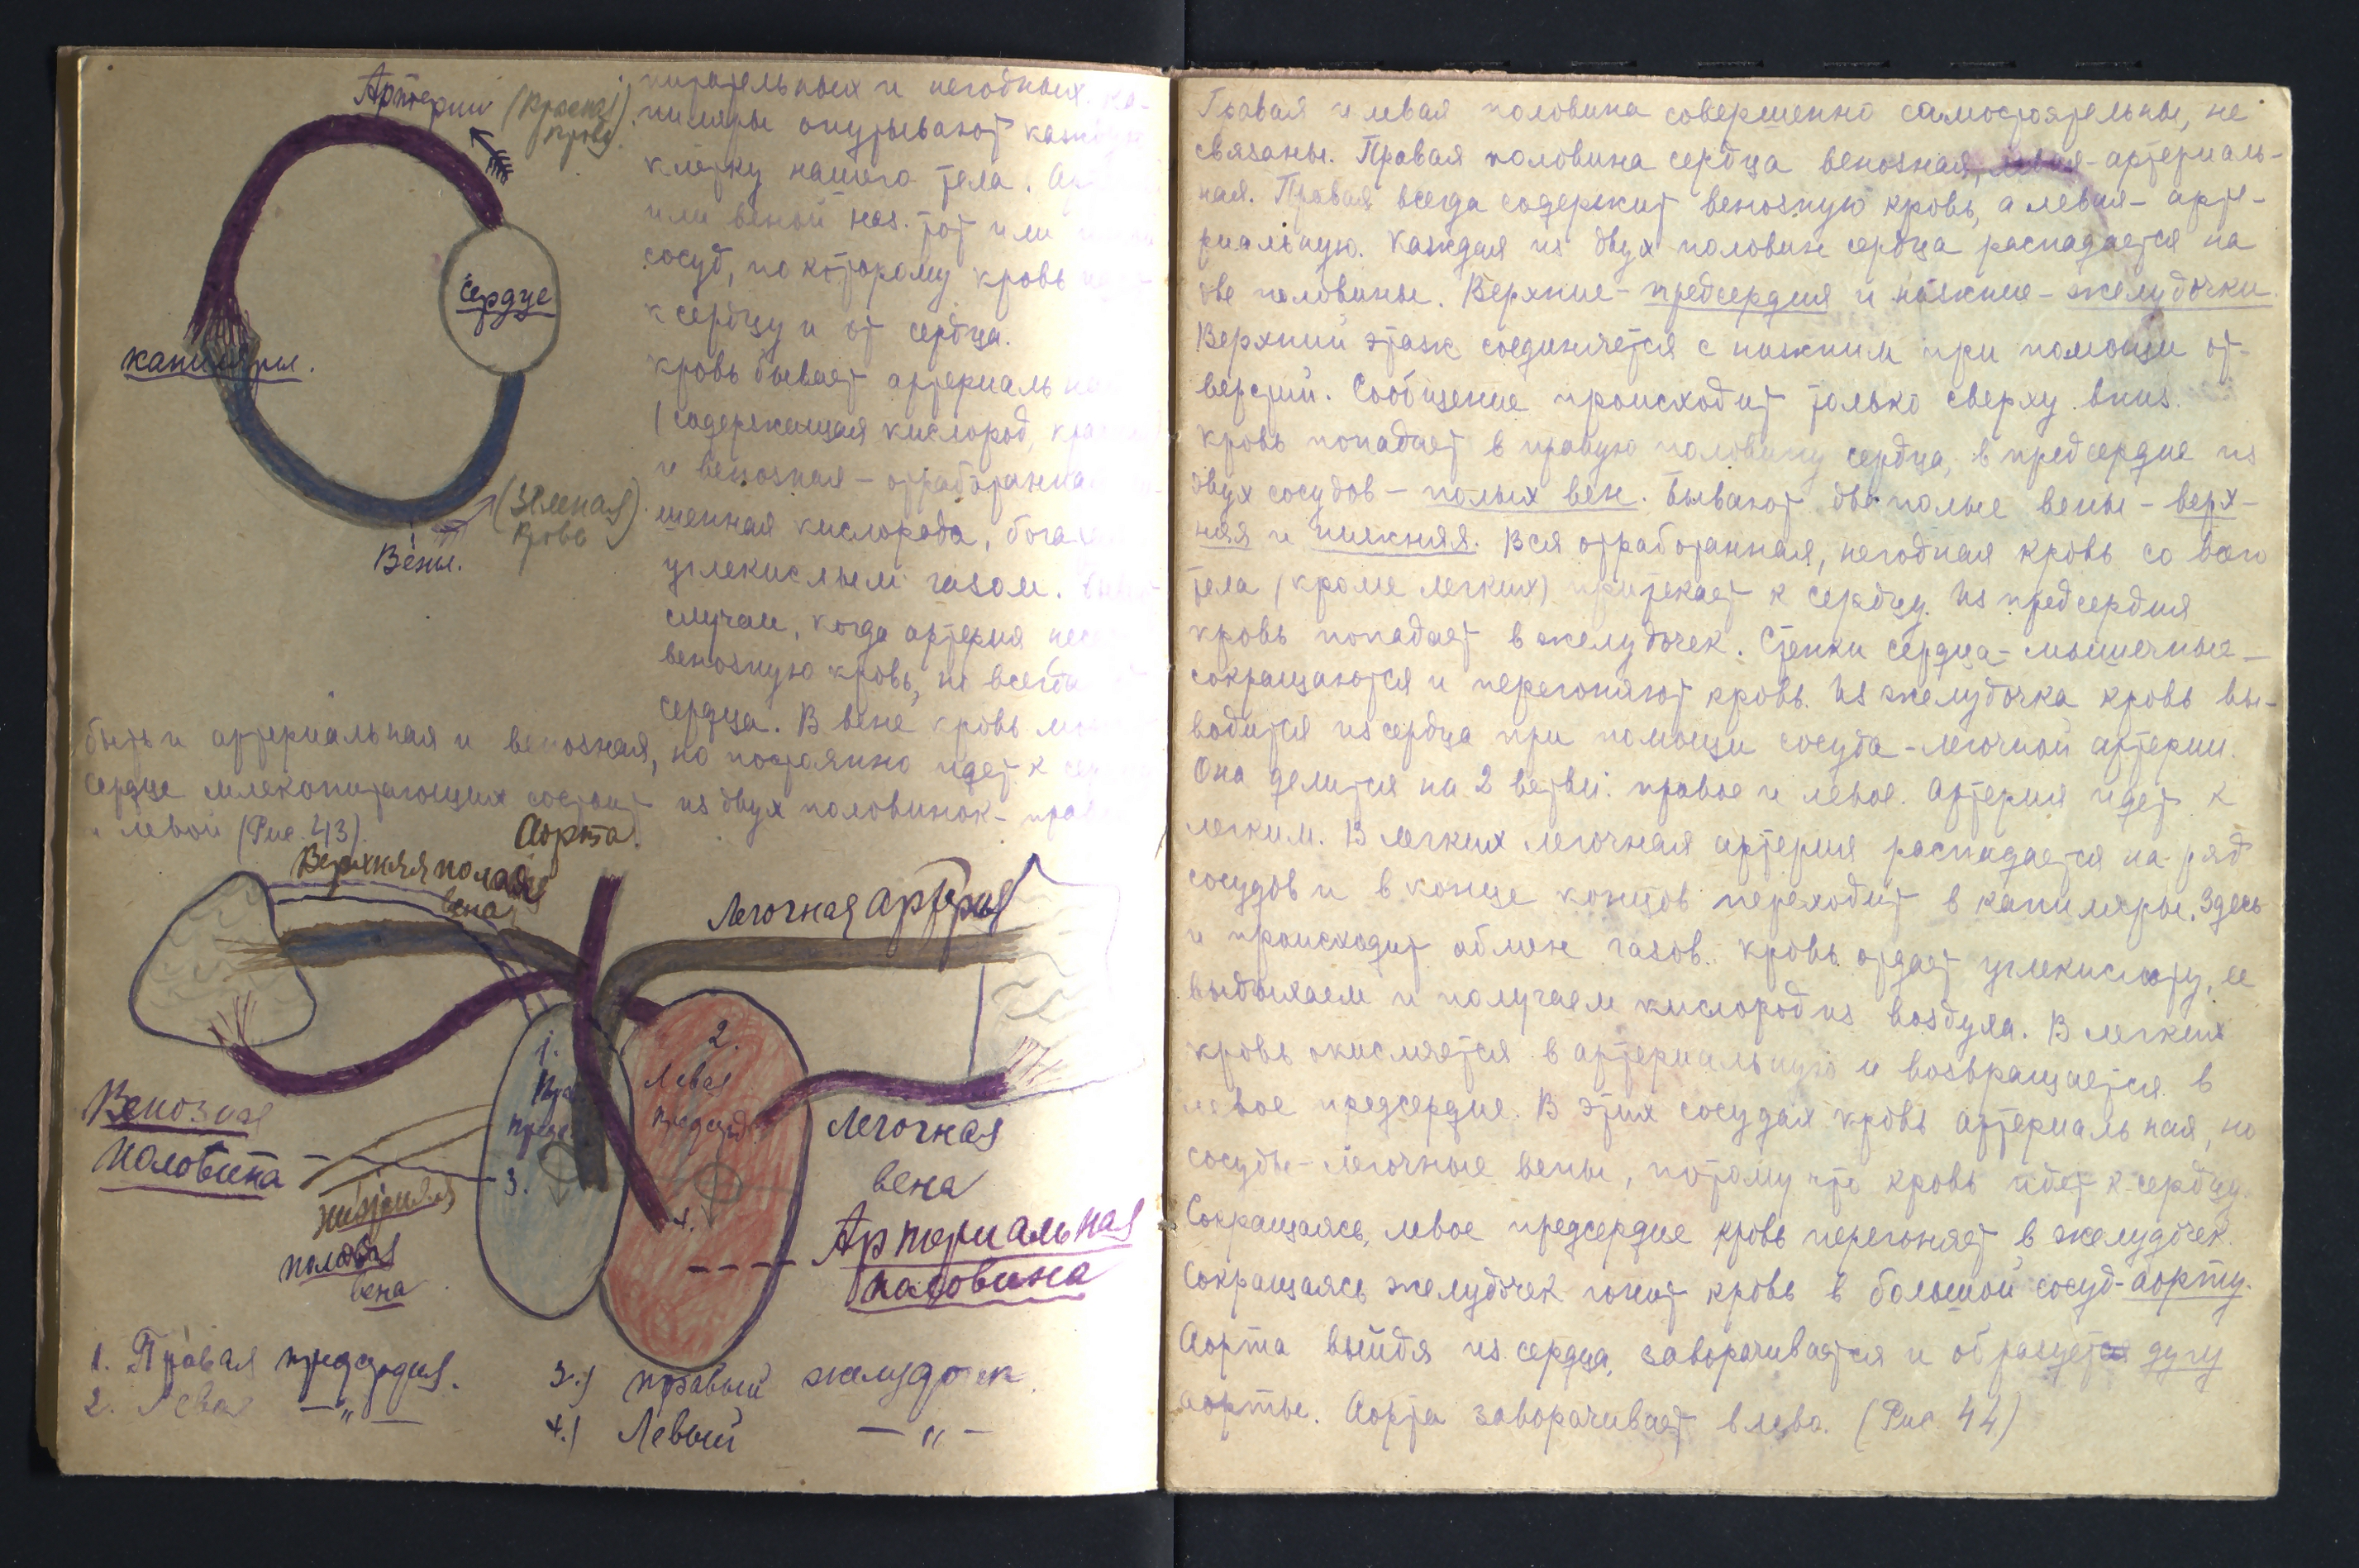 Артерии (Красная кровь)
сердце
капиляры.
(Зеленая) кровь
Вены.
питательных и негодных. Ка-
пиляры опутывают каждую
клетку нашего тела. Ар
или веной наз. тот или
сосуд, по которому кровь
к сердцу и от сердца.
Кровь бывает артериаль
(содержащая кислород,
и венозная - отработанная
шенная кислорода, бога
углекислым газом.
случаи, когда артерия несе
венозную кровь, но всегда
сердца. В вене кровь мо
быть и артериальная и венозная, но постоянно идет к
Сердце млекопитающих состоит из двух половинок - прав
и левой (Рис. 43).
Аорта.
Верхняя полая
вена
Легочная артерия
1.
Пра
предс
3.
2.
Левая
предсерд
4.
Венозная
половина
нижняя
полая
вена
Легочная
вена
Артериальная
половина
1. Правая предсердия.
2. Левая —"—
3.) правый желудочек.
4.) Левый —"—
Правая и левая половина совершенно самостоятельны, не
связаны. Правая половина сердца венозная, левая - артериаль-
ная. Правая всегда содержит венозную кровь, а левая - арте-
риальную. Каждая из двух половин сердца распадается на
две половины. Верхние - предсердия и нижние - желудочки.
Верхний этаж соединяется с нижним при помощи от-
верстий. Сообщение происходит только сверху вниз.
Кровь попадает в правую половину сердца, в предсердие из
двух сосудов - полых вен. Бывают две полые вены - верх-
няя и нижняя. Вся отработанная, негодная кровь со всего
тела (кроме легких) притекает к сердцу. Из предсердия
кровь попадает в желудочек. Стенки сердца - мышечные -
сокращаются и перегоняют кровь. Из желудочка кровь вы-
водится из сердца при помощи сосуда - легочной артерии.
Она делится на 2 ветви: правое и левое. Артерия идет к
легким. В легких легочная артерия распадается на ряд
сосудов и в конце концов переходит в капиляры. Здесь
и происходит обмен газов. Кровь отдает углекислоту, ее
выдыхаем и получаем кислород из воздуха. В легких
кровь окисляется в артериальную и возвращается в
левое предсердие. В этих сосудах кровь артериальная, но
сосуды - легочные вены, потому что кровь идет к сердцу.
Сокращаясь, левое предсердие кровь перегоняет в желудочек.
Сокращаясь желудочек гонит кровь в большой сосуд - аорту.
Аорта выйдя из сердца, заворачивается и образует дугу
аорты. Аорта заворачивает влево. (Рис. 44)